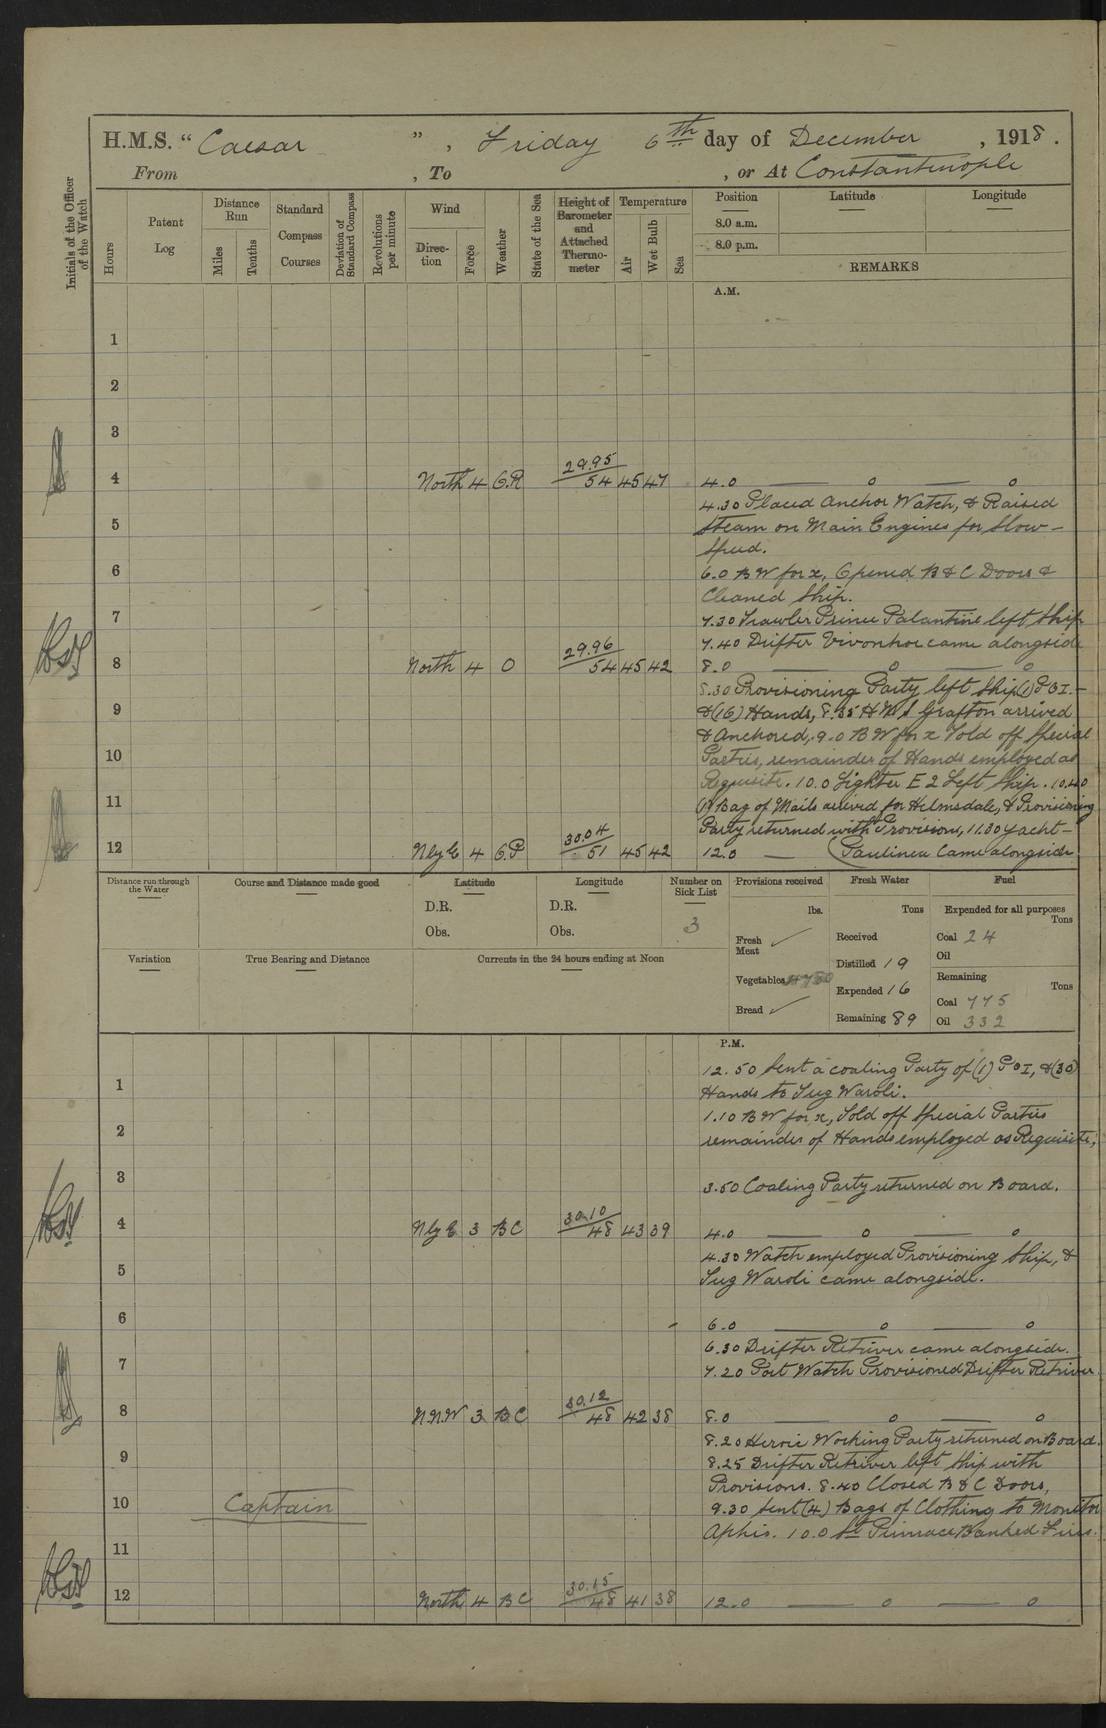 H.M.S. “Caesar”, Friday 6th day of December, 1918.
From , To , or At Constantinople
Initials of the Officer of the Watch
Hours
Patent Log
Distance Run
Miles
Tenths
Standard Compass Courses
Deviation of Standard Compass
Revolutions per minute
Wind
Direction
Force
Weather
State of the Sea
Height of Barometer and Attached Thermometer
Temperature
Air
Wet Bulb
Sea
Position Latitude Longitude
8.0 a.m.
8.0 p.m.
REMARKS
A.M.
1
2
3
4 North 4 O.R 29.95 54 45 47 4.0 — o — o
4.30 Placed Anchor Watch, & Raised
5 Steam on Main Engines for Slow-
Speed.
6 6.0 BW for x, Opened B & C Doors &
Cleaned Ship.
7 7.30 Trawler Prince Palantine left Ship
7.40 Drifter Vivonhoe came alongside
8 North 4 O 29.96 54 45 42 8.0 — o — o
8.30 Provisioning Party left Ship (1) P.O I.-
9 & (16) Hands, 8.35 H M S Grafton arrived
& Anchored, 9.0 B W for x Told off Special
10 Parties, remainder of Hands employed as
Requisite. 10.0 Lighter E 2 Left Ship. 10.40
11 (1) Bag of Mails arrived for Helmsdale, & Provisioning
Party returned with Provisions, 11.30 yacht-
12 Nly E 4 O.P 30.04 51 45 42 12.0 — (Paulinea Came alongside
Distance run through the Water
Course and Distance made good
Latitude
D.R.
Obs.
Longitude
D.R.
Obs.
Number on Sick List
3
Provisions received
lbs.
Fresh Meat ✓
Vegetables
Bread ✓
Fresh Water
Tons
Received
Distilled 19
Expended 16
Remaining 89
Fuel
Expended for all purposes
Tons
Coal 24
Oil
Remaining
Tons
Coal 775
Oil 332
Variation
True Bearing and Distance
Currents in the 24 hours ending at Noon
P.M.
12.50 Sent a coaling Party of (1) P O I, & (30)
1 Hands to Tug Waroli.
1.10 B W for x, Told off Special Parties
2 remainder of Hands employed as Requisite,
3 3.50 Coaling Party returned on Board.
4 Nly E 3 BC 30.10 48 43 39 4.0 — o — o
4.30 Watch employed Provisioning Ship, &
5 Tug Waroli came alongside.
6 6.0 — o — o
6.30 Drifter Retriver came alongside.
7 7.20 Port Watch Provisioned Drifter Retriver
8 N.N.W 3 BC 30.12 48 42 38 8.0 — o — o
8.20 Heroic Working Party returned on Board.
9 8.25 Drifter Retriver left Ship with
Provisions. 8.40 Closed B & C Doors,
10 Captain 9.30 Sent (4) Bags of Clothing to Monitor
Aphis. 10.0 St Pinnace Banked Fires.
11
12 North 4 BC 30.15 48 41 38 12.0 — o — o